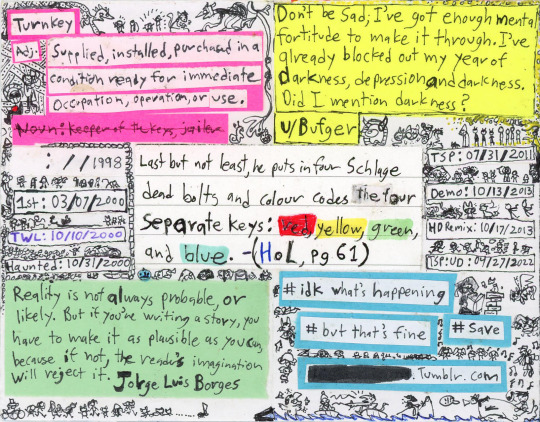 Turnkey
Adj.
Supplied, installed, purchased in a
condition ready for immediate
Occupation, operation, or use.
Noun: keeper of the keys, jailer
Don't be Sad, I've got enough mental
fortitude to make it through. I've
already blocked out my year of
darkness, depression and darkness.
Did I mention darkness?
u/Bufger
: / /1998
1st: 03/07/2000
TWL: 10/10/2000
Haunted: 10/31/2000
Last but not least, he puts in four Schlage
dead bolts and colour codes the four
Separate keys: red, yellow, green,
and blue. -(HoL, pg 61)
TSP: 07/31/2011
Demo: 10/13/2013
HD Remix: 10/17/2013
TSP:UD: 04/27/2022
Reality is not always probable, or
likely. But if you're writing a story, you
have to make it as plausible as you can,
because if not, the reader's imagination
will reject it. Jorge Luis Borges
#idk what's happening
# but that's fine
# Save
.Tumblr.com